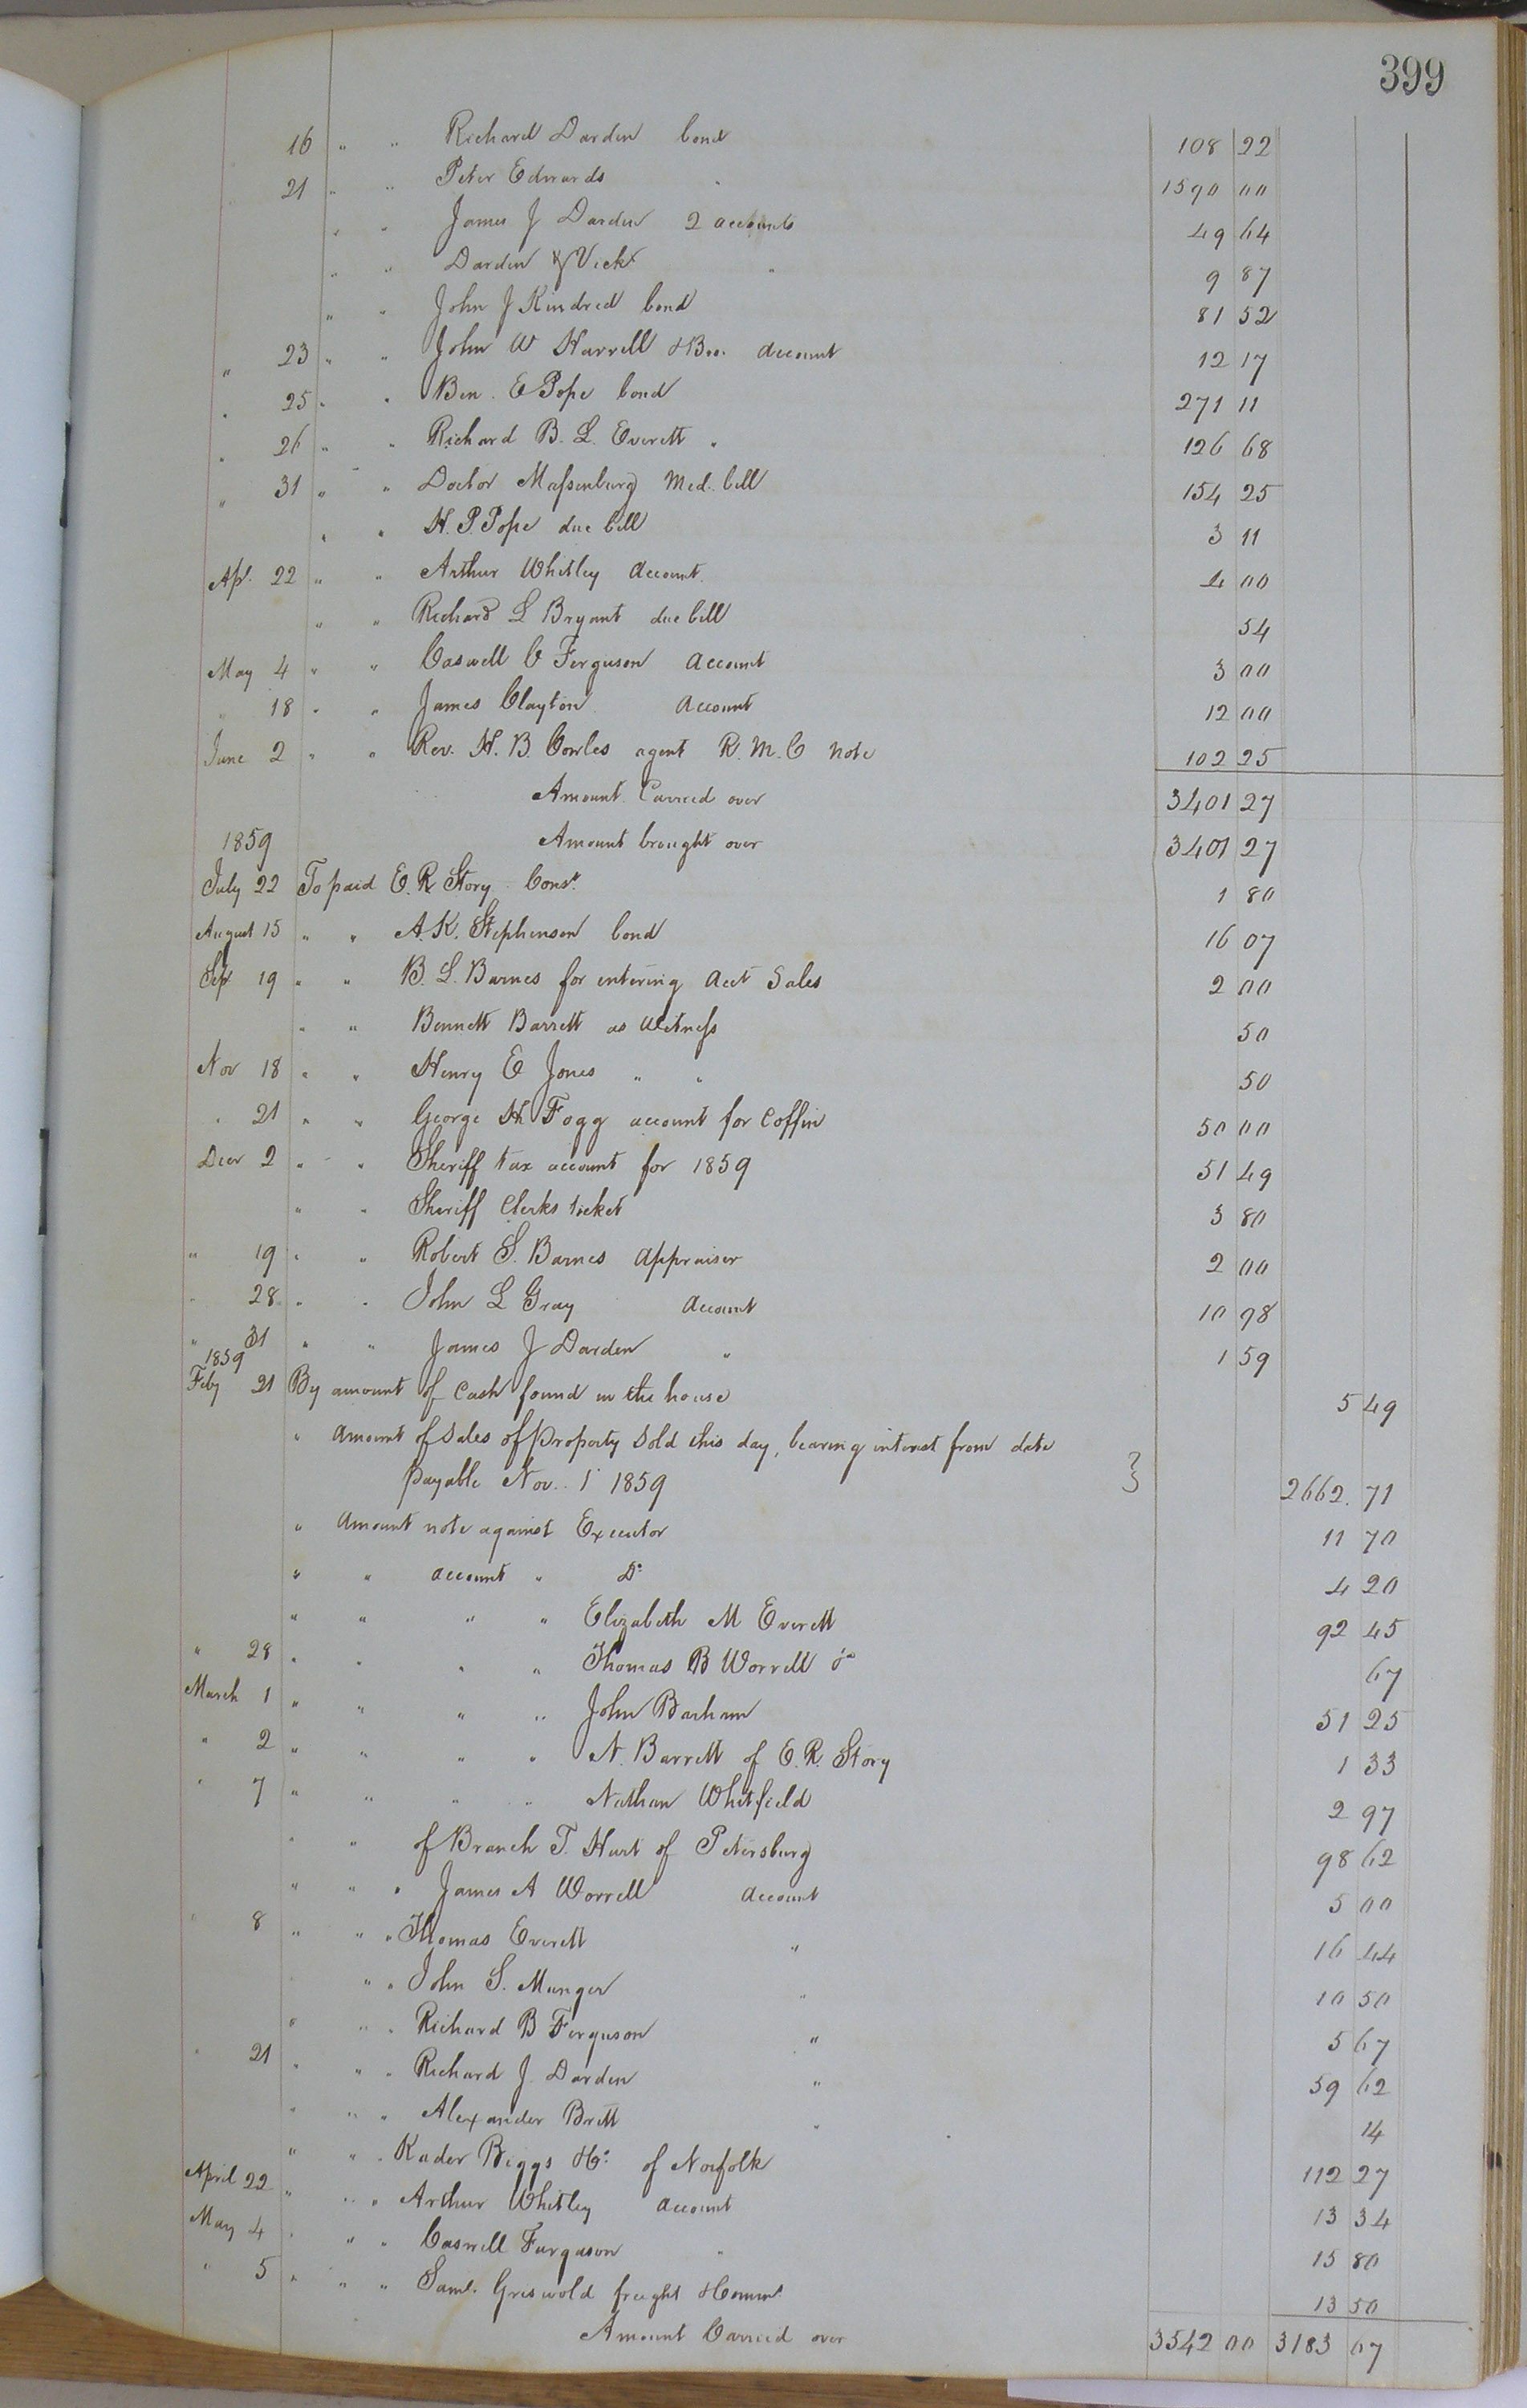 399
16 " " Richard Darden bond 108 22
21 " " Peter Edwards " 1590 00
" " James J Darden 2 accounts 49 64
" " Darden & Vick " 9 87
" " John J Kindred bond 81 52
" 23 " " John W Harrell & Bro. account 12 17
" 25 " " Ben. E Pope bond 271 11
" 26 " " Richard B. L. Everett " 126 68
" 31 " " Doctor Massenburg Med. bill 154 25
" " H. P. Pope due bill 3 11
Apl. 22 " " Arthur Whitley account 4 00
" " Richard L Bryant due bill 54
May 4 " " Caswell C Ferguson account 3 00
" 18 " " James Clayton account 12 00
June 2 " " Rev. H. B. Cowles agent R. M. C note 102 25
Amount Carried over 3401 27
1859 Amount brought over 3401 27
July 22 To paid E. R. Story Const. 1 80
August 15 " " A. K. Stephenson bond 16 07
Sep. 19 " " B. L. Barnes for entering acct Sales 2 00
" " Bennett Barrett as witness 50
Nov 18 " " Henry E Jones " " 50
" 21 " " George H Fogg account for coffin 50 00
Decr 2 " " Sheriff tax account for 1859 51 49
" " Sheriff Clerks ticket 3 80
" 19 " " Robert S. Barnes appraiser 2 00
" 28 " " John L Gray account 10 98
" 31 " " James J Darden " 1 59
1859
Feby 21 By amount of cash found in the house 5 49
" amount of sales of property sold this day, bearing interest from date
payable Nov. 1 1859 } 2662. 71
" amount note against Executor 11 70
" " account " Do 4 20
" " " " Elizabeth M Everett 92 45
" 28 " " " " Thomas B Worrell 67
March 1 " " " " John Barham 51 25
" 2 " " " " N. Barrett of E. R. Story 1 33
" 7 " " " " Nathan Whitfield 2 97
" " of Branch T. Hurt of Petersburg 98 62
" " " James A Worrell account 5 00
" 8 " " " Thomas Everett " 16 44
" " John S. Munger " 10 50
" " " Richard B Ferguson " 5 67
" 21 " " " Richard J. Darden " 59 62
" " " Alexander Britt " 14
" " " Kader Biggs & Co of Norfolk 112 27
April 22 " " " Arthur Whitley account 13 34
May 4 " " " Caswell Furgason " 15 80
" 5 " " " Saml. Griswold freight & Comm. 13 50
Amount Carried over 3542 00 3183 67